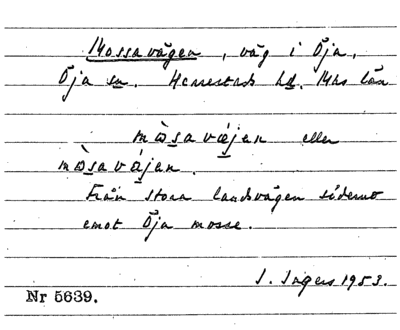 Mossavägen, väg i Öja,
Öja sn. Herrestads hd. Mhs län
mòsavæjen eller
mòsavájen.
Från stora landsvägen söderut
emot Öja mosse.
I. Ingers 1953.
Nr 5639.